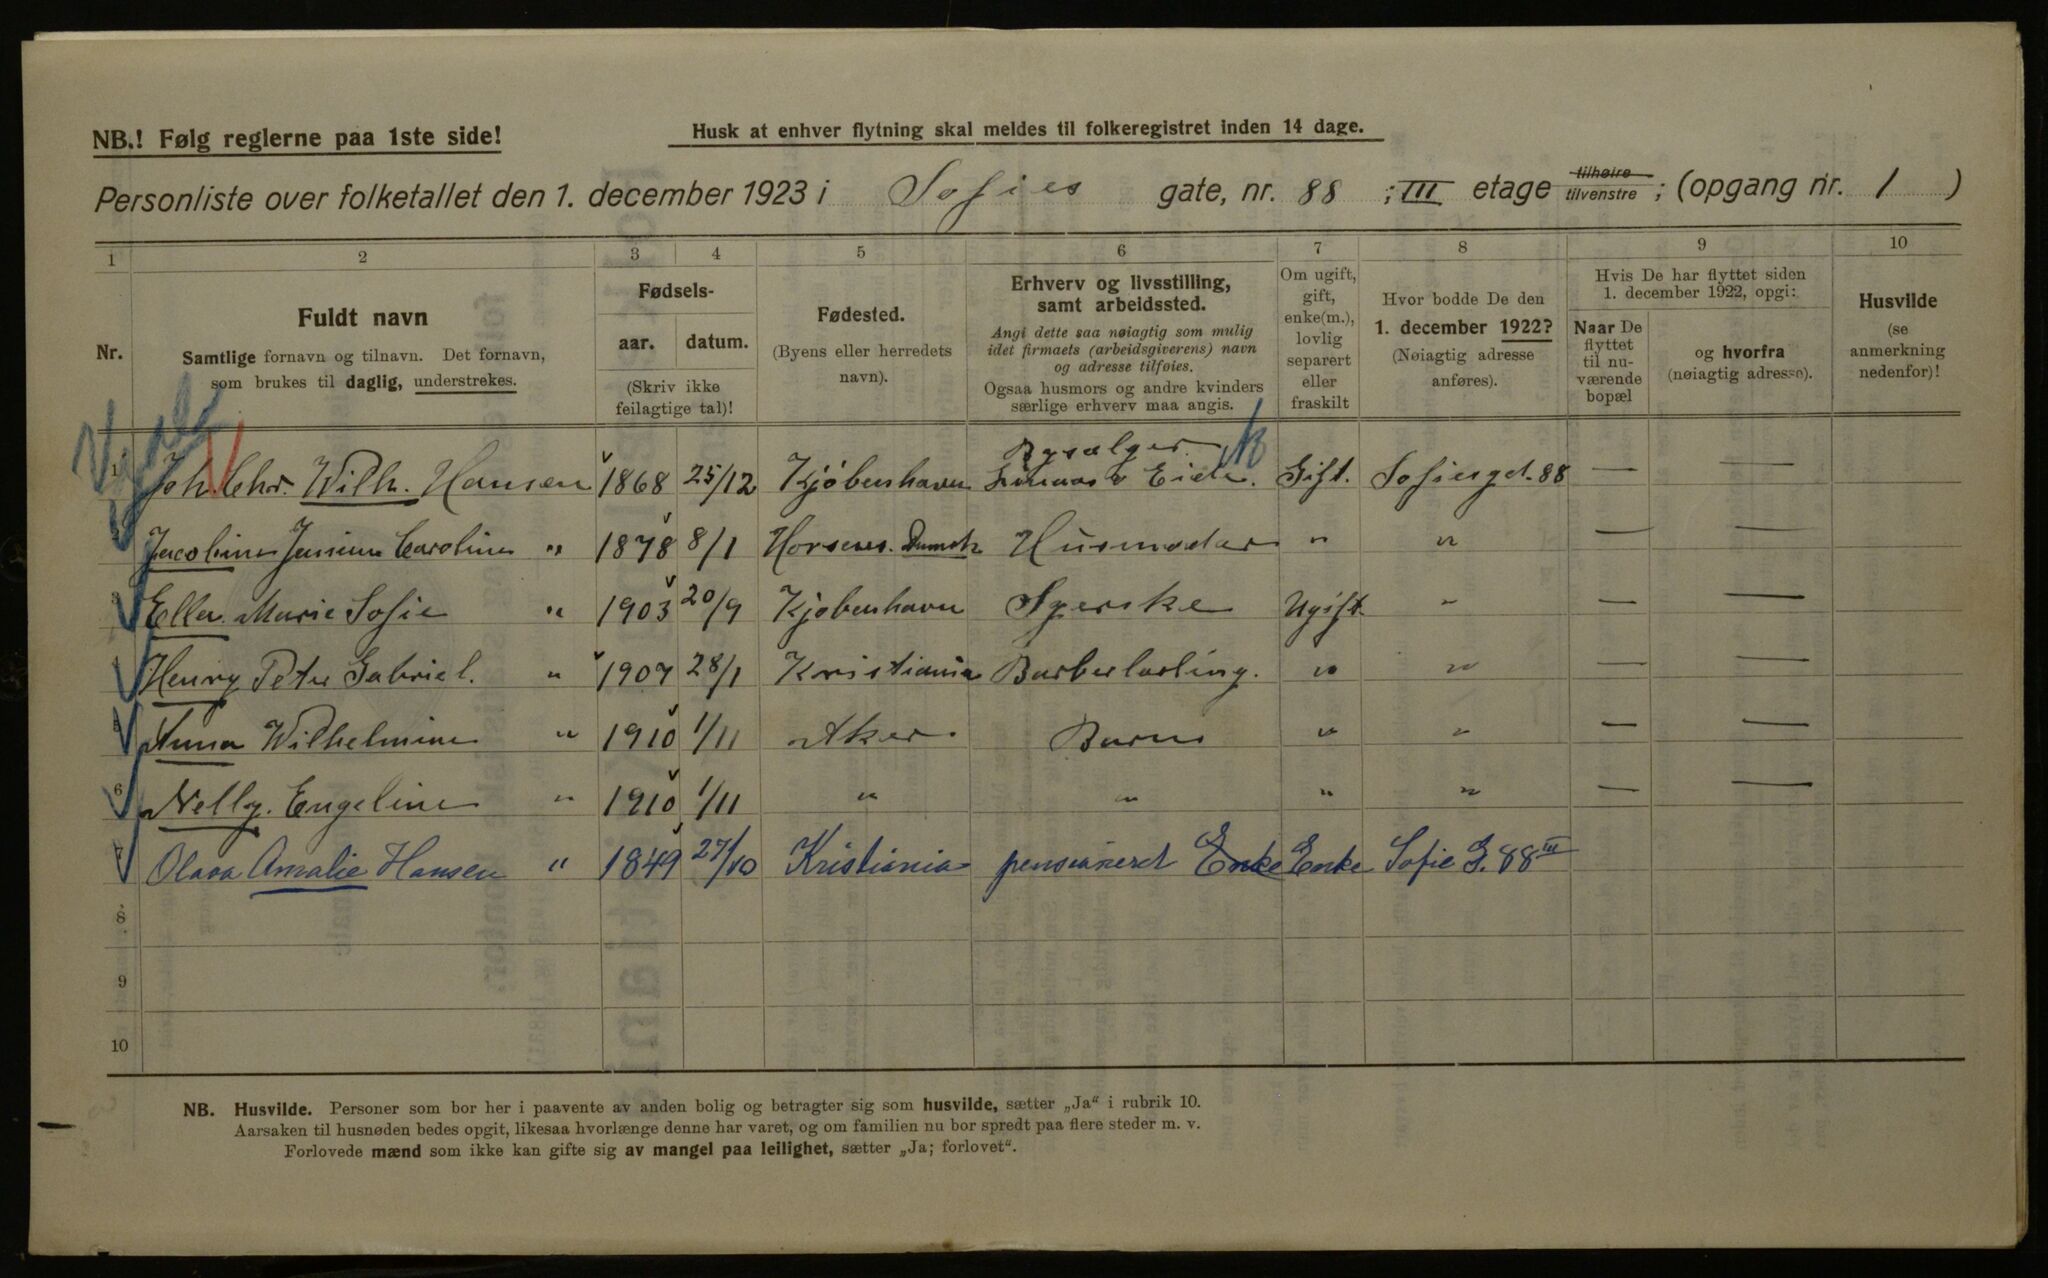 NB.! Følg reglerne paa 1ste side!
Husk at enhver flytning skal meldes til folkeregistret inden 14 dage.
Personliste over folketallet den 1. december 1923 i Sofies gate, nr. 88 ; III etage tilhøire tilvenstre ; (opgang nr. 1 )
1 2 3 4 5 6 7 8 9 10
Nr.
Fuldt navn
Samtlige fornavn og tilnavn. Det fornavn,
som brukes til daglig, understrekes.
Fødsels-
aar. datum.
(Skriv ikke
feilagtige tal)!
Fødested.
(Byens eller herredets
navn).
Erhverv og livsstilling,
samt arbeidssted.
Angi dette saa nøiagtig som mulig
idet firmaets (arbeidsgiverens) navn
og adresse tilføies.
Ogsaa husmors og andre kvinders
særlige erhverv maa angis.
Om ugift,
gift,
enke(m.),
lovlig
separert
eller
fraskilt
Hvor bodde De den
1. december 1922?
(Nøiagtig adresse
anføres).
Hvis De har flyttet siden
1. december 1922, opgi:
Naar De
flyttet
til nu-
værende
bopæl
og hvorfra
(nøiagtig adresse).
Husvilde
(se
anmerkning
nedenfor)!
Bysælger
1 Joh. Chr. Wilh. Hansen 1868 25/12 Kjøbenhavn Eide. Gift. Sofiesgd. 88 — —
2 Jacobine Caroline " 1878 8/1 Horsens. Danmk Husmodar " " — —
3 Ella Marie Sofie " 1903 20/9 Kjøbenhavn Syerske Ugift " — —
4 Henry Peter Gabriel. " 1907 28/1 Kristiania Barberlærling. " " — —
5 Anna Wilhelmine " 1910 1/11 Aker Barn " " — —
6 Nelly. Engeline " 1910 1/11 " " " " — —
7 Olava Amalie Hansen " 1849 27/10 Kristiania pensioneret Enke Enke Sofie G. 88 III
8
9
10
NB. Husvilde. Personer som bor her i paavente av anden bolig og betragter sig som husvilde, sætter „Ja“ i rubrik 10.
Aarsaken til husnøden bedes opgit, likesaa hvorlænge denne har varet, og om familien nu bor spredt paa flere steder m. v.
Forlovede mænd som ikke kan gifte sig av mangel paa leilighet, sætter „Ja; forlovet“.